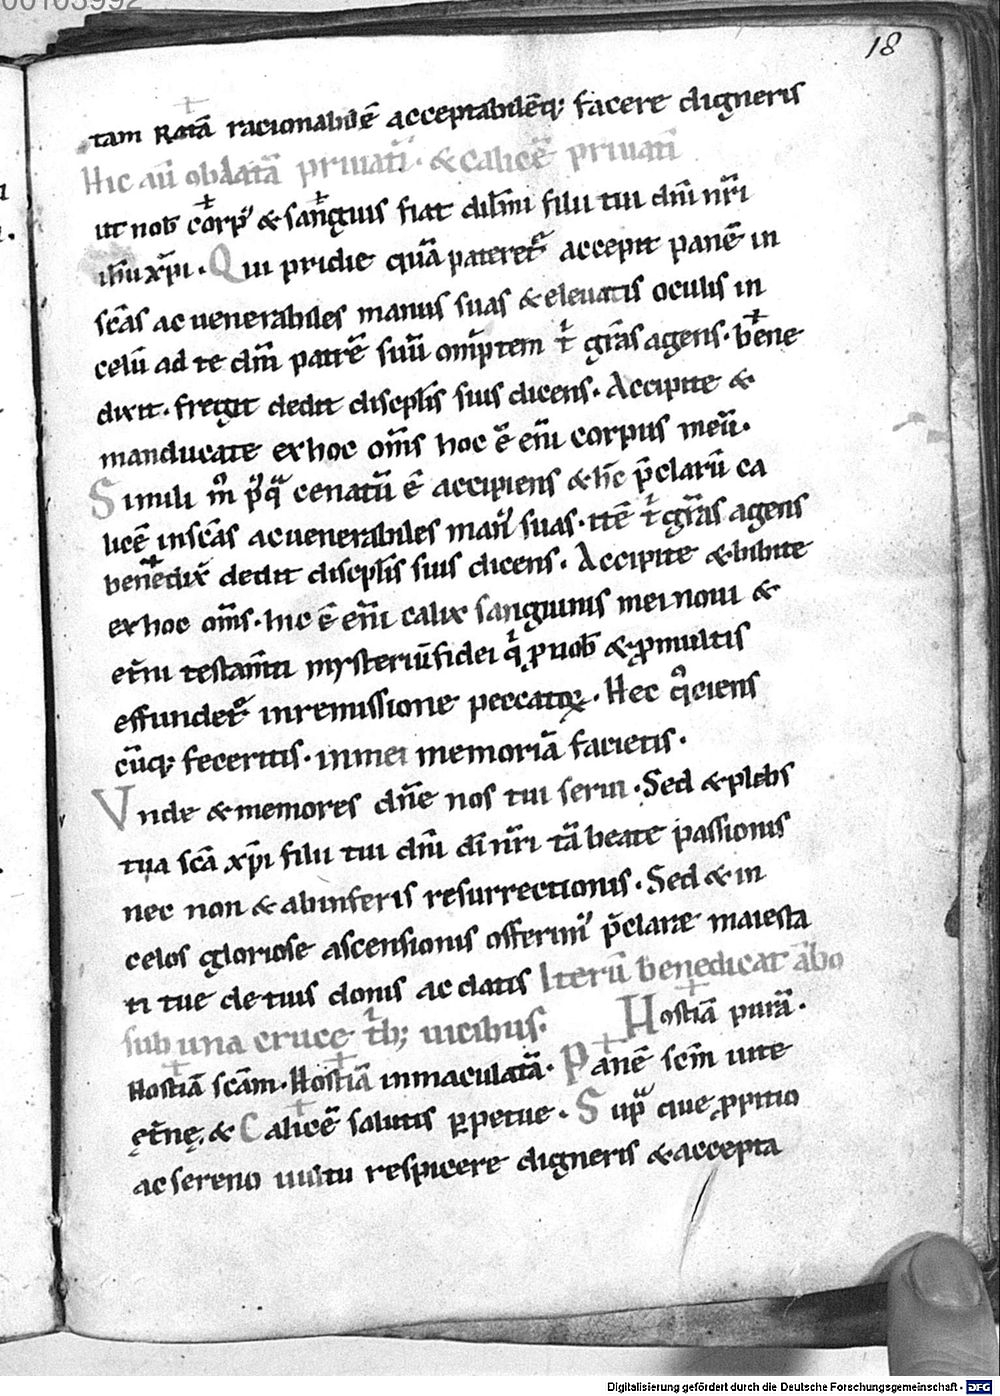 00103992
18
tam Ratā racionabilē acceptabilēq; facere digneris
Hic aū oblatā priuatī. & calicē priuatī
ut nob corp' & sanguis fiat dilm̄i filii tui dm̄i nr̄i
ihū xp̄i. Qui pridie quā pateret' accepit panē in
sc̄as ac uenerabiles manus suas & eleuatis oculis in
celū ad te dm̄ patrē suū omīptem t' grās agens. bene
dixit. fregit dedit discplis suis dicens. Accipite &
manducate ex hoc om̄s hoc ē eni corpus meū.
Simili m° p'q̄ cenatū ē accipiens & hc p̄clarū ca
licē in sc̄as ac uenerabiles man' suas. itē t' grās agens
benedix' dedit discplis suis dicens. Accipite & bibite
ex hoc om̄s. hic ē eni calix sanguinis mei noui &
et̄ni testam̄ti mysteriū fidei q' p nob & p multis
effundet' in remissione peccatoꝝ. Hec q°ciens
cūq; feceritis. in mei memoriā facietis.
Vnde & memores dn̄e nos tui serui. Sed & plebs
tua sc̄a xp̄i filii tui dm̄i dī nr̄i tā beate passionis
nec non & ab inferis resurrectionis. Sed & in
celos gloriose ascensionis offerim' p̄clare maiesta
ti tue de tuis donis ac datis Iterū benedicat ābo
sub una cruce t'b; uicibus. Hostiā purā.
Hostiā scām. Hostiā inmaculatā. Panē scm̄ uite
ęt̄nę. & Calicē salutis ꝑpetue. Sup' que ꝓpitio
ac sereno uultu respicere digneris & accepta
Digitalisierung gefördert durch die Deutsche Forschungsgemeinschaft - DFG